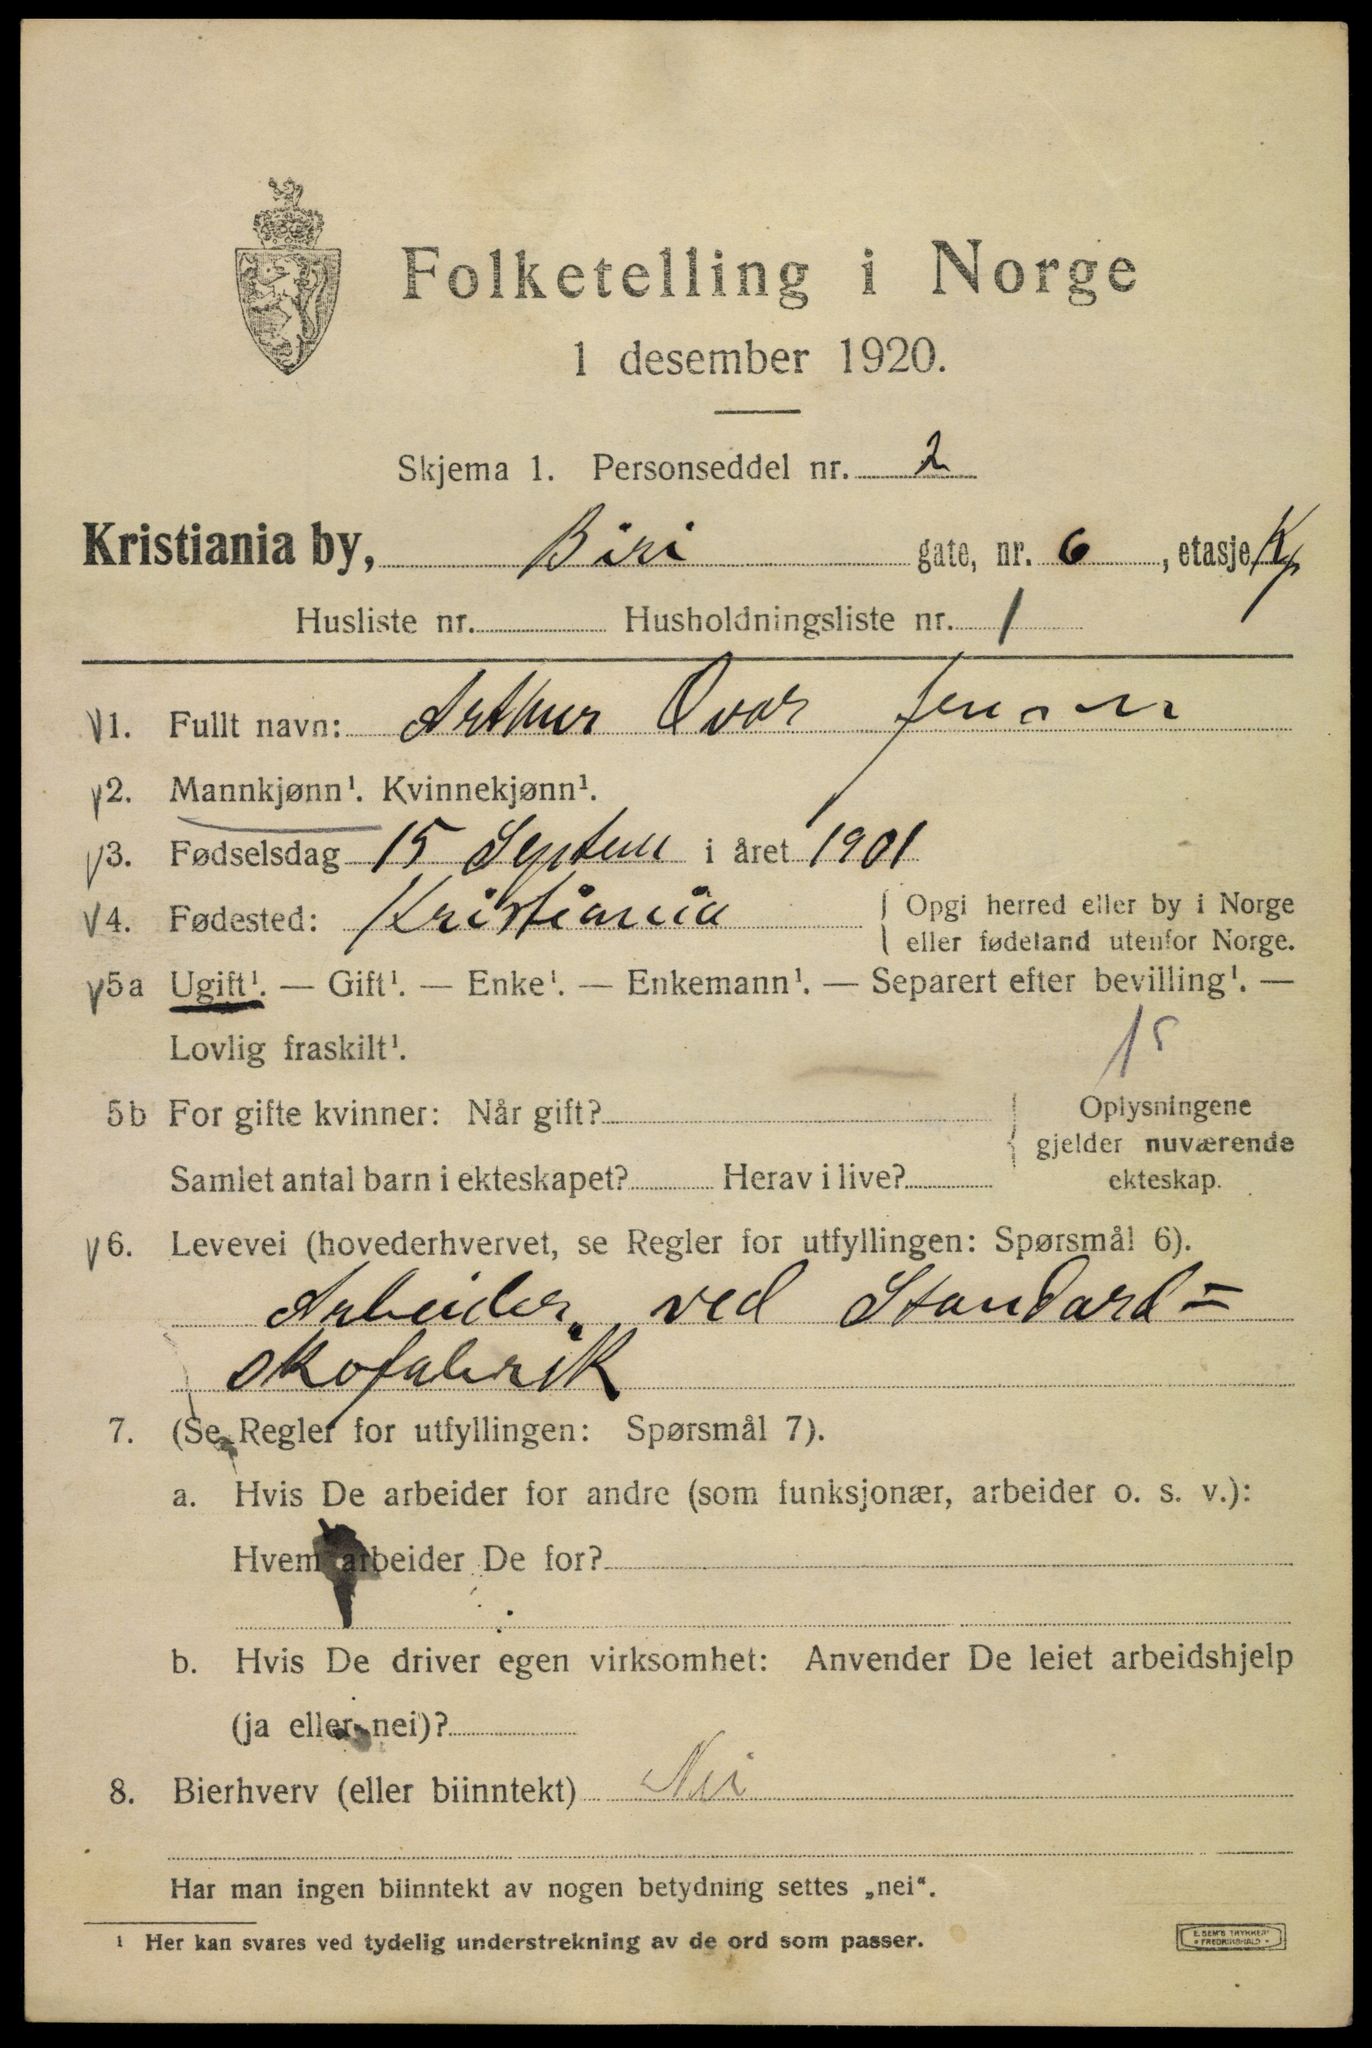 Folketelling i Norge
1 desember 1920.
Skjema 1. Personseddel nr. 2
Kristiania by, Biri gate, nr. 6, etasje Kj
Husliste nr. Husholdningsliste nr. 1
1. Fullt navn: Arthur Ovar Jensen
2. Mannkjønn¹. Kvinnekjønn¹.
3. Fødselsdag 15 Septem i året 1901
4. Fødested: Kristiania { Opgi herred eller by i Norge
eller fødeland utenfor Norge.
5a Ugift¹. — Gift¹. — Enke¹. — Enkemann¹. — Separert efter bevilling¹. —
Lovlig fraskilt¹.
15
5b For gifte kvinner: Når gift? { Oplysningene
gjelder nuværende
Samlet antal barn i ekteskapet? Herav i live? ekteskap.
6. Levevei (hovederhvervet, se Regler for utfyllingen: Spørsmål 6).
Arbeider ved Standard=
skofabrik
7. (Se Regler for utfyllingen: Spørsmål 7).
a. Hvis De arbeider for andre (som funksjonær, arbeider o. s. v.):
Hvem arbeider De for?
b. Hvis De driver egen virksomhet: Anvender De leiet arbeidshjelp
(ja eller nei)?
8. Bierhverv (eller biinntekt) Nei
Har man ingen biinntekt av nogen betydning settes „nei“.
¹ Her kan svares ved tydelig understrekning av de ord som passer.
E. SEM'S TRYKKERI
FREDRIKSHALD